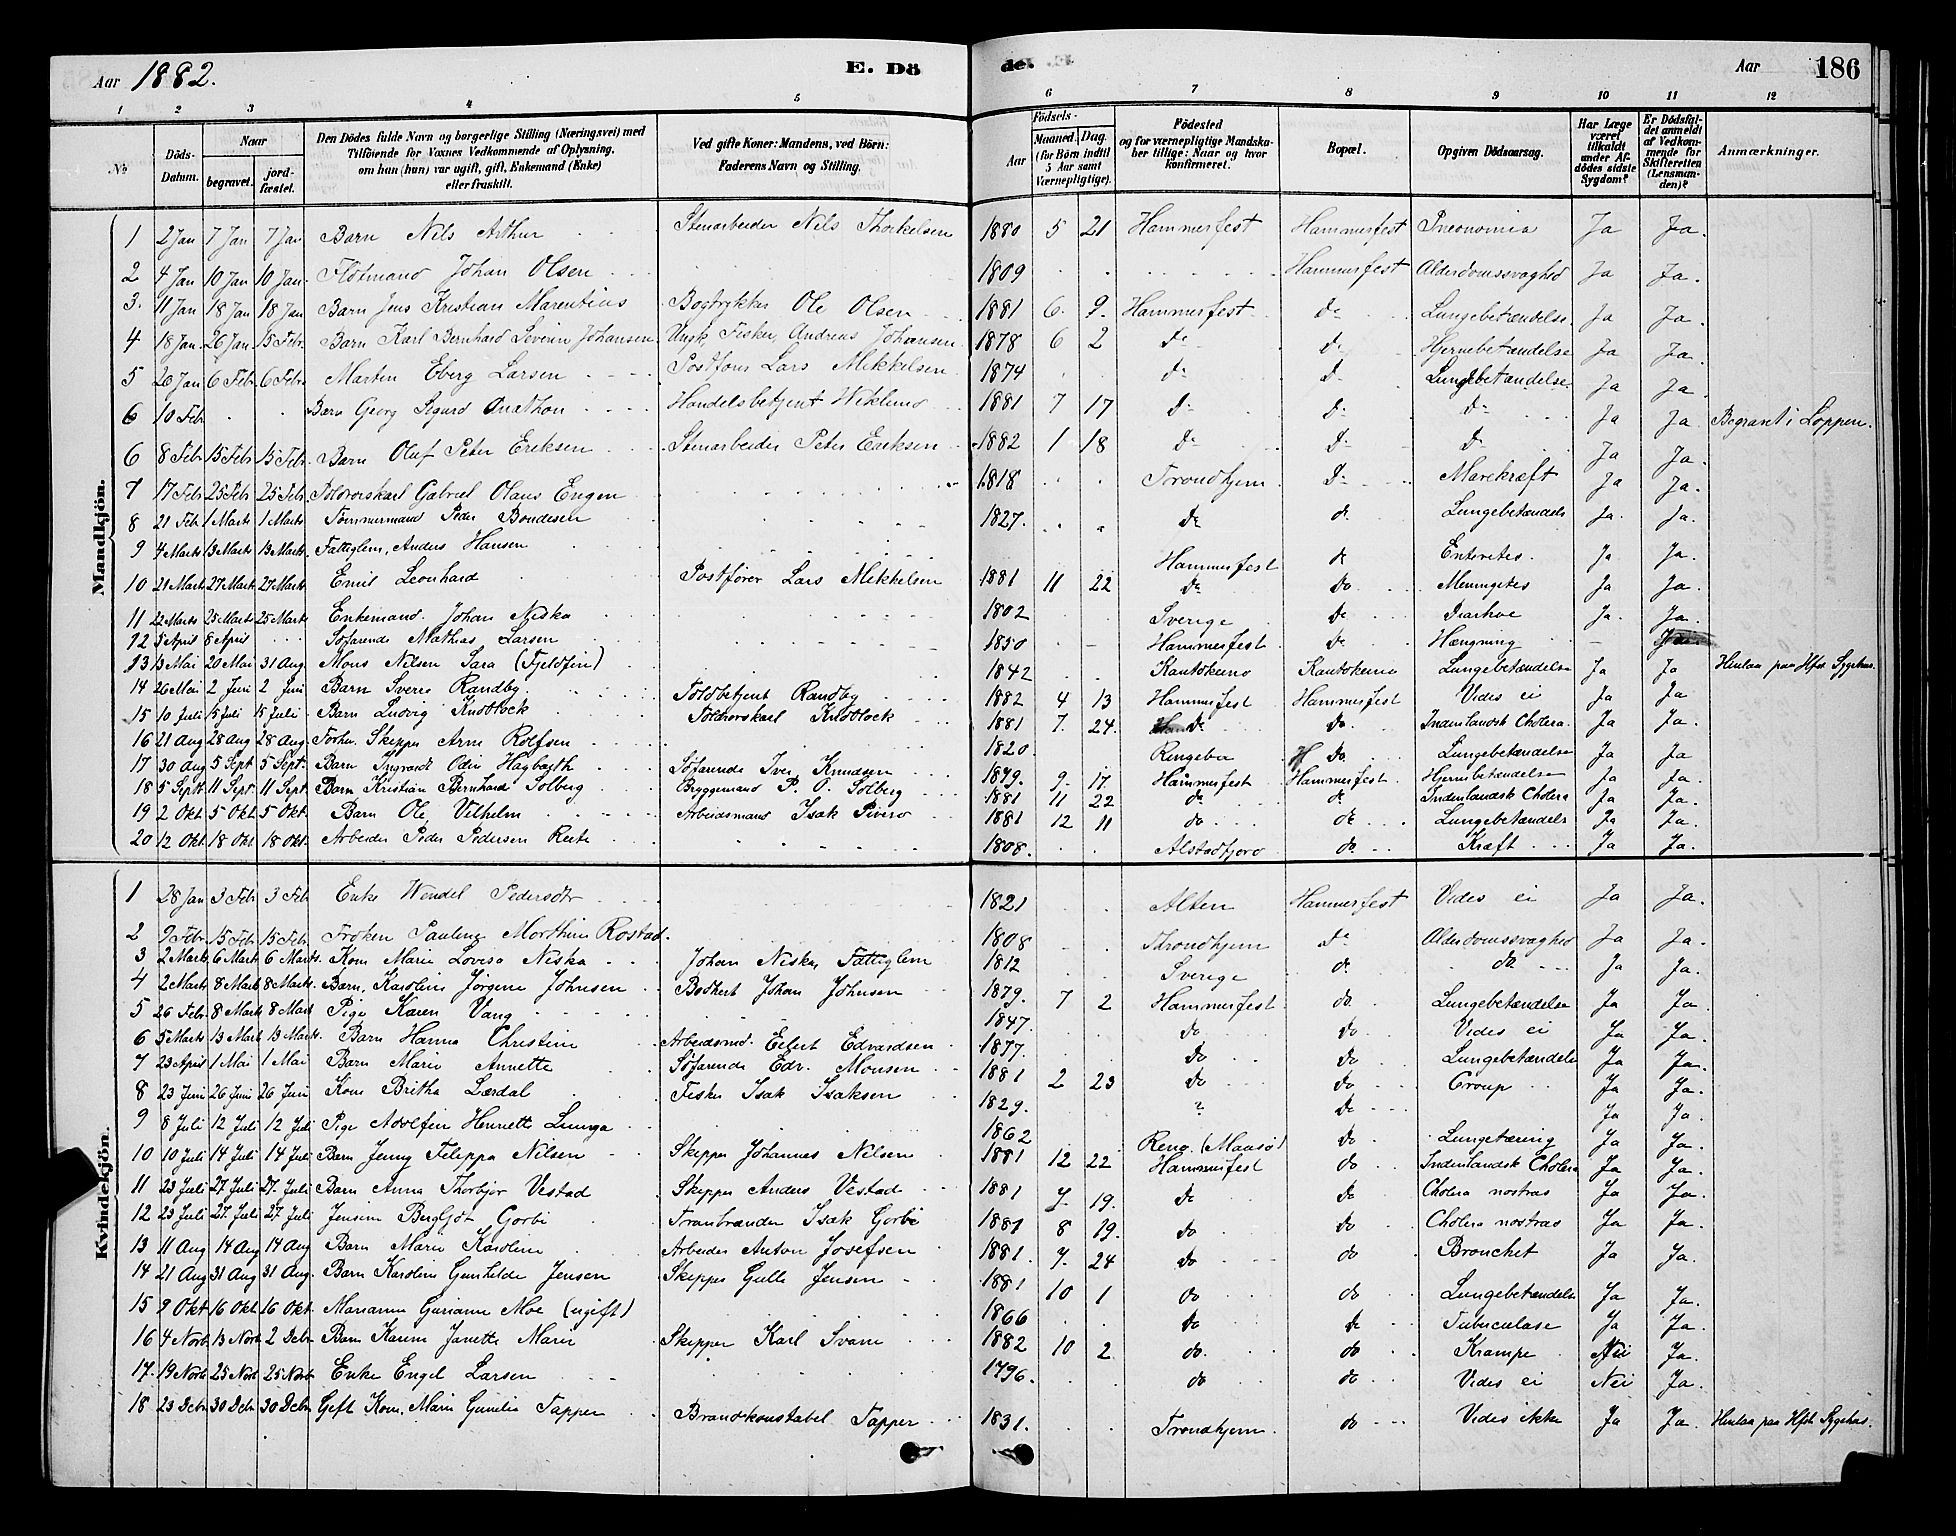 Aar 1882. E. Döde. Aar 186
1 2 3 4 5 6 7 8 9 10 11 12
No Döds-Datum. Naar begravet. jordfæstet. Den Dödes fulde Navn og borgerlige Stilling (Næringsvei) med Tilföiende for Voxnes Vedkommende af Oplysning, om han (hun) var ugift, gift, Enkemand (Enke) eller fraskilt. Ved gifte Koner: Mandens, ved Börn: Faderens Navn og Stilling. Födsels- Aar Maaned. Dag. (for Börn indtil 5 Aar samt Værnepligtige). Födested og for værnepligtige Mandskaber tillige: Naar og hvor konfirmeret. Bopæl. Opgiven Dödsaarsag. Har Læge været tilkaldt under Afdödes sidste Sygdom? Er Dödsfaldet anmeldt af Vedkommende for Skifteretten (Lensmanden)? Anmærkninger.
Mandkjön.
1 2 Jan 7 Jan 7 Jan Barn Nils Arthur Stenarbeider Nils Thorkelsen 1880 5 21 Hammerfest Hammerfest Pneonomia Ja Ja.
2 4 Jan 10 Jan 10 Jan Johan Olsen 1809 Hammerfest Alderdomssvaghed Ja Ja.
3. 11 Jan 18 Jan 18 Jan Barn Jens Kristian Marentius Bogtrykker Ole Olsen 1881 6. 9. Hammerfest do Lungebetændelse Ja Ja.
4 18 Jan. 26 Jan. 15 Febr. Barn Karl Bernhard Severin Johansen Ungk. Fisker, Andreas Johansen 1878 6 2 do do Hjernebetændelse Ja Ja.
5 26 Jan 6 Febr. 6 Febr. Martin Eberg Larsen Lars Mikkelsen 1874 do do Lungebetændelse Ja Ja.
6 10 Feb Barn Georg Sigurd Anathon Handelsbetjent Wiklund 1881 7 17 do do do Ja Ja Begravet i Loppen.
6 8 Febr 15 Febr 15 Febr. Barn Oluf Peter Eriksen Stenarbeider Peter Eriksen 1882 1 18 do do do Ja Ja.
7 17 Febr 25 Febr 25 Febr. Toldrorskarl Gabriel Olaus Engen 1818 Trondhjem do Mavekræft Ja Ja.
8 21 Feb. 1 Marts 1 Marts Tømmermand Peder Bondesen 1827. do do Lungebetændels Ja. Ja.
9 4 Marts 13 Marts 13 Marts Fattiglem, Anders Hansen Hammerfest do Enteretes. Ja Ja.
10 21 Marts 27 Marts 27 Marts Emil Leonhard Postfører Lars Mikkelsen 1881 11 22 do do Meningetes Ja Ja.
11 22 Marts 25 Marts 25 Marts Enkemand. Johan Niska 1802 Sverige do Diarhoe Ja. Ja.
12 5 April 8 April Søfarende Mathias Larsen 1850 Hammerfest do Hængning
13 13 Mai 20 Mai 31 Aug. Mons Nilsen Sara (Fjeldfin) 1842 Kautokeino Kautokeino Lungebetændelse Ja Ja Henlaa paa Hfst Sygehus.
14 26 Mai 2 Juni 2 Juni Barn Sverre Randby. Toldbetjent Randby 1882 4 13 Hammerfest Hammerfest Vides ei Ja Ja
15 10 Juli 15 Juli 15 Juli Barn Ludvig Knoblock Toldrorskarl Knoblock 1881 7. 24. do do. Indenlandsk Cholera. Ja Ja.
16 21 Aug 28 Aug 28 Aug. Forhv. Skipper Arne Rolfsen 1820. Ringebu do. Lungebetændelse Ja Ja
17 30 Aug 5 Sept 5 Sept. Barn Ingvardt Odin Hagbarth Søfarende Iver Knudsen 1879. 9. 17. Hammerfest Hammerfest. Hjernebetændelse Ja Ja.
18 5 Sept 11 Sept. 11 Sept. Barn Kristian Bernhard Solberg Bryggemand P. O. Solberg 1881 11 22 do do Indenlandsk Cholera Ja Ja.
19 2 Okt 5 Okt 5 Okt. Barn Ole Vilhelm Arbeidsmand Isak 1881 12 11 do do Lungebetændels Ja Ja.
20 12 Okt. 18 Okt 18 Okt. Arbeider Peder Pedersen 1808. do Kræft Ja Ja.
Kvindekjön.
1 28 Jan 3 Febr 3 Feb Enke Wendel Pedersdtr 1821 Alten Hammerfest Vides ei Ja Ja.
2 9 Febr. 15 Febr 15 Febr. Frøken Pauline Morthine Rostad. 1808 Throndhjem do Alderdomssvaghed Ja Ja.
3 2 Marts 6 Marts 6 Marts. Kone Marie Lovisa Niska Johan Niska, Fattiglem 1812 Sverige do do Ja Ja.
4 2 Marts 8 Marts 8 Marts. Barn, Karoline Jørgine Johnsen Bødkert Johan Johnsen 1879. 7 2 Hammerfest do. Lungebetændelse Ja Ja
5 26 Febr. 8 Marts 8 Mars Pige Karen Vang 1847. do do Vides ei Ja Ja.
6 5 Marts 13 Mart 13 Marts. Barn Hanna Christine Arbeidsmd. Eilert Edvardsen 1877. do do Lungebetændels Ja Ja.
7 23 April 1 Mai 1 Mai Barn Marie Annette Søfarende Edv. Monsen 1881 2 23 do do Croup Ja Ja.
8 23 Juni 26 Juni 26 Juni Kone Britha Lærdal Fisker Isak Isaksen 1829. ? do Ja Ja.
9 8 Juli 12 Juli 12 Juli Pige Adolfin Henriette Lunga 1862 Renø. (Maasø) do Lungetæring Ja Ja.
10 10 Juli 14 Juli 14 Juli Barn Jenny Filippa Nilsen Skipper Johannes Nilsen 1881 12 22 Hammerfest do Indenlandsk Cholera Ja Ja.
11 23 Juli 27. Juli 27. Juli Barn Anna Thorbjør Vestad Skipper Anders Vestad 1881 7. 19. do do Cholera nostras Ja Ja.
12 23 Juli 27. Juli 27 Juli Jensine Bergljot Gorbi Tranbrænder Isak Gorbi 1881 8 19. do do Cholera nostras Ja Ja.
13 11 Aug 14 Aug 14 Aug Barn Marie Karoline Arbeider Anton Josefsen 1881. 7. 24 do do Bronchet Ja Ja.
14 21 Aug 31 Aug 31 Aug. Barn Karoline Gunhilde Jensen Skipper Gulle Jensen 1881 10 1 do do Lungebetændels Ja Ja.
15 9 Okt 16 Okt 16 Okt. Marianne Guriane Moe (ugift) 1866 do do Tuberculose Ja Ja.
16 4 Novb 13 Novb 2 Decbr Barn Karen Janette Marie Skipper Karl Svane 1882 10 2 do. do Krampe Nei Ja.
17. 19 Novb 25 Novb 25 Novb. Enke Engel Larsen 1796. do do Vides ei Nei Ja.
18 23 Decbr 30 Decbr 30 Decbr Gift Kone. Marie Gunilia Tapper Brandkonstabel Tapper 1831. Trondhjem. do Vides ikke Ja Ja. Henlaa paa Hfst. Sygehus.